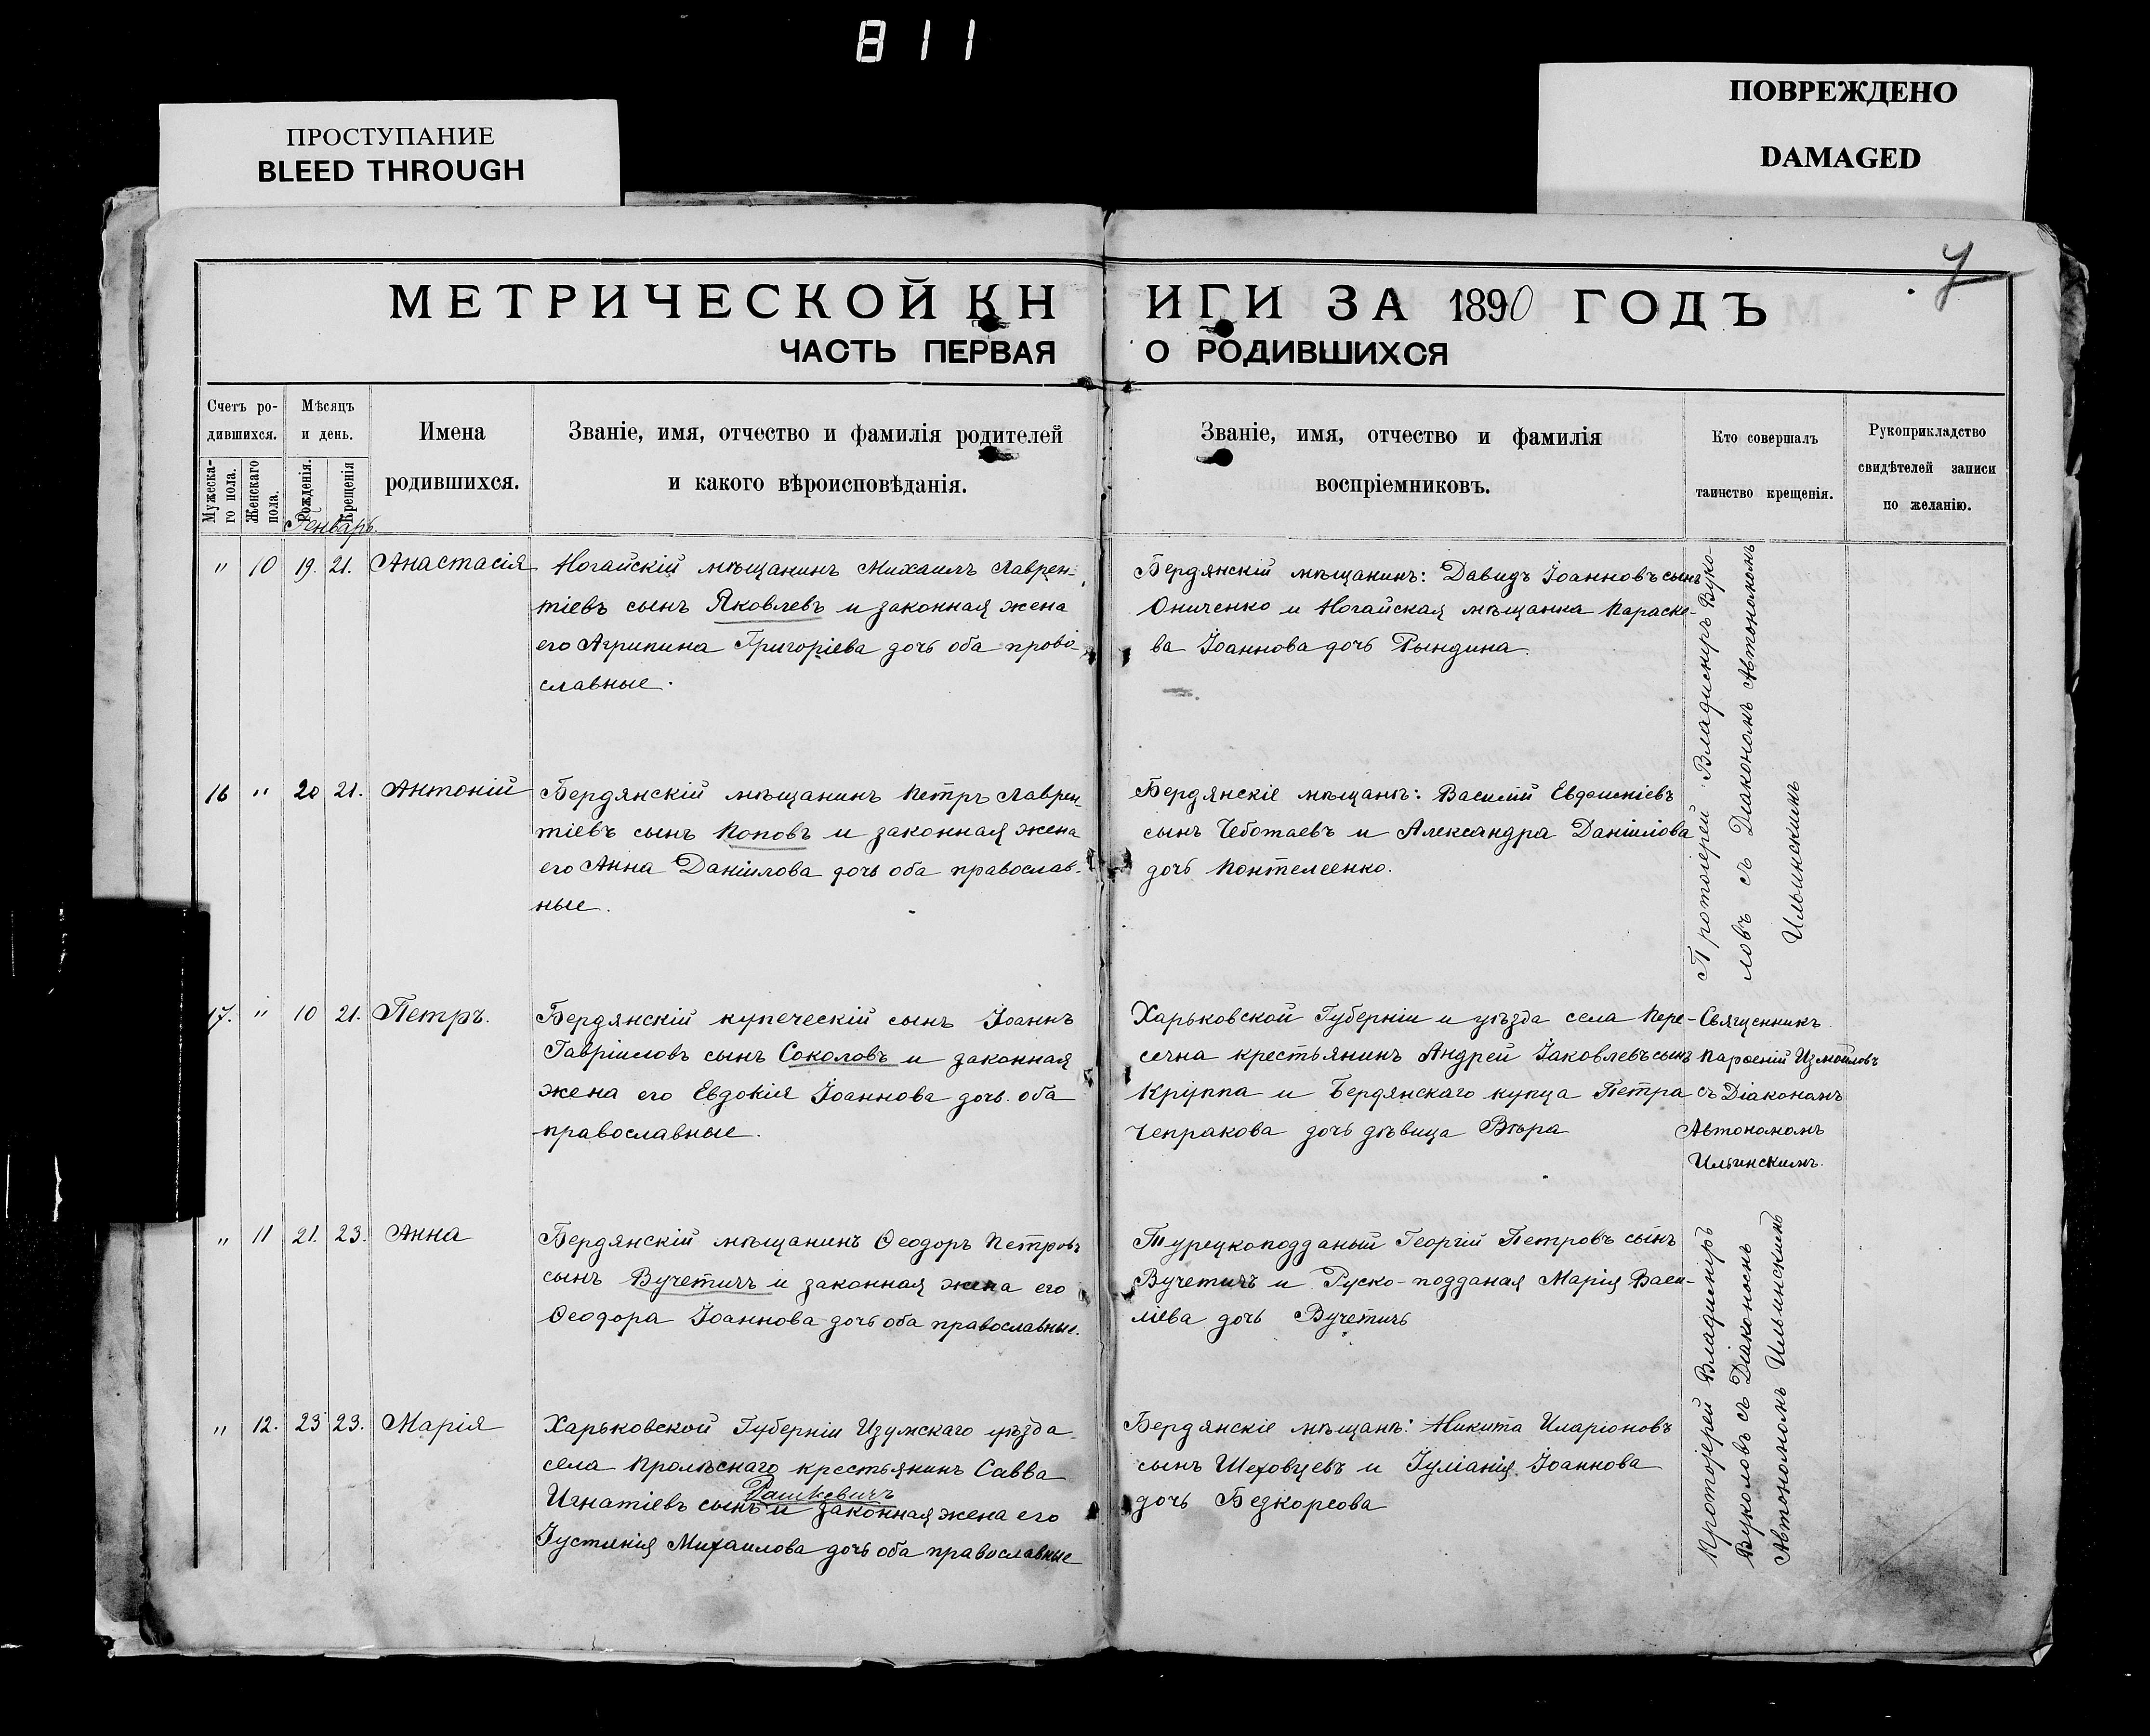 811
ПРОСТУПАНИЕ
BLEED THROUGH
ПОВРЕЖДЕНО
DAMAGED
7
МЕТРИЧЕСКОЙ КНИГИ ЗА 1890 ГОДЪ
ЧАСТЬ ПЕРВАЯ О РОДИВШИХСЯ
Счетъ ро-
дившихся.
Мужеска-
го пола.
Женскаго
пола.
Мѣсяцъ
и день.
Рожденія.
Крещенія
Имена
родившихся.
Званіе, имя, отчество и фамилія родителей
и какого вѣроисповѣданія.
Званіе, имя, отчество и фамилія
воспріемниковъ.
Кто совершалъ
таинство крещенія.
Рукоприкладство
свидѣтелей записи
по желанію.
Генварь.
" 10 19. 21. Анастасія
Ногайскій мѣщанинъ Михаилъ Лаврен-
тіевъ сынъ Яковлевъ и законная жена
его Агрипина Григоріева дочь оба право-
славные.
Бердянскій мѣщанинъ: Давидъ Іоанновъ сынъ
Ониченко и Ногайская мѣщанка Параске-
ва Іоаннова дочь Рындина.
Протоіерей Владимиръ Вуко-
ловъ съ Діакономъ Автономомъ
Ильинскимъ
16 " 20 21. Антоній
Бердянскій мѣщанинъ Петръ Лаврен-
тіевъ сынъ Поповъ и законная жена
его Анна Даніилова дочь оба православ-
ные.
Бердянскіе мѣщанѣ: Василій Евдокиміевъ
сынъ Чеботаевъ и Александра Даніилова
дочь Понтелеенко.
17. " 10 21. Петръ.
Бердянскій купеческій сынъ Іоаннъ
Гавріиловъ сынъ Соколовъ и законная
жена его Евдокія Іоаннова дочь оба
православные.
Харьковской Губерніи и уѣзда села Пере-
сечна крестьянинъ Андрей Іаковлевъ сынъ
Круппа и Бердянскаго купца Петра
Чепракова дочь дѣвица Вѣра
Священникъ
Парѳеній Измаиловъ
съ Діакономъ
Автономомъ
Ильинскимъ.
" 11 21. 23. Анна
Бердянскій мѣщанинъ Ѳеодоръ Петровъ
сынъ Вучетичъ и законная жена его
Ѳеодора Іоаннова дочь оба православные.
Турецкоподданый Георгій Петровъ сынъ
Вучетичъ и Руско-подданая Марія Васи-
ліева дочь Вучетичъ
Протоіерей Владимиръ
Вуколовъ съ Діакономъ
Автономомъ Ильинскимъ
" 12. 23 23. Марія
Харьковской Губерніи Изумскаго уѣзда
села Пролѣснаго крестьянинъ Савва
Рашкевичъ
Игнатіевъ сынъ и законная жена его
Іустинія Михаилова дочь оба православные
Бердянскіе мѣщанѣ: Никита Иларіоновъ
сынъ Шеховцевъ и Іуліанія Іоаннова
дочь Безкорсова